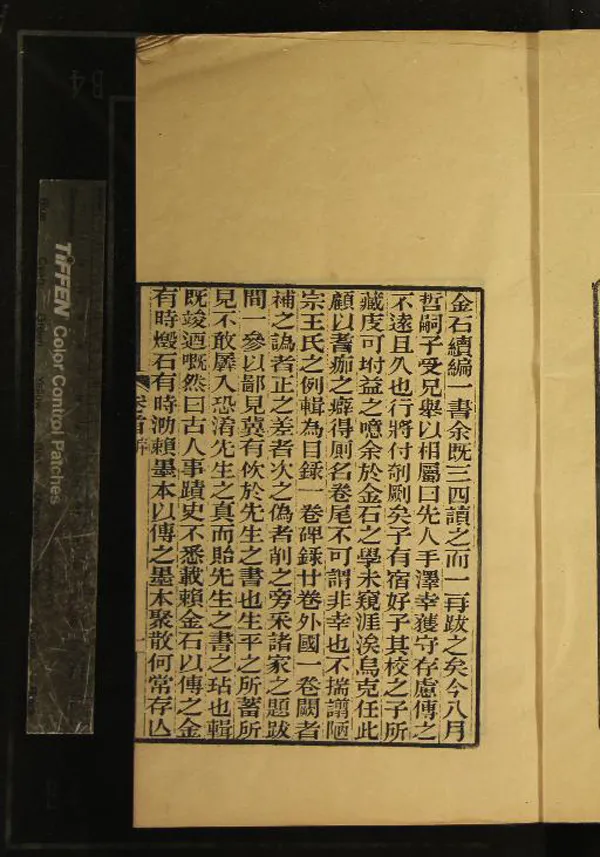 金石續編一書余既三四讀之而一再跋之矣今八月
哲嗣子受兄舉以相屬曰先人手澤幸獲守存慮傳之
不遠且久也行將付剞劂矣子有宿好子其校之子所
藏庋可坿益之噫余於金石之學未窺涯涘烏克任此
顧以耆痂之癖得廁名卷尾不可謂非幸也不揣譾陋
宗王氏之例輯為目錄一卷碑錄廿卷外國一卷闕者
補之譌者正之差者次之偽者削之旁采諸家之題跋
間一參以鄙見冀有佽於先生之書也生平之所蓄所
見不敢羼入恐淆先生之真而貽先生之書之玷也輯
既竣迺嘅然曰古人事蹟史不悉載賴金石以傳之金
有時燬石有時泐賴墨本以傳之墨本聚散何常存亾
卷首
一
TIFFEN Color Control Patches
B4